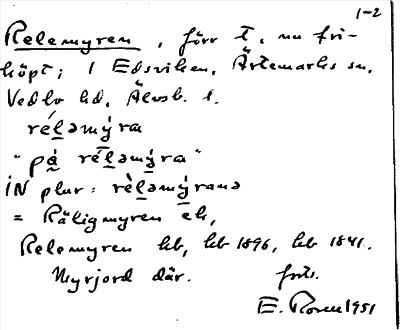 1-2
Relemyren, förr t. nu fri-
köpt; i Edsviken, Ärtemarks sn,
Vedbo hd, Älvsb. l.
réləmýra
"på réləmýra"
iN plur: rèləmýranə
= Räligmyren ek,
Relemyren hb, hb 1896, hb 1841.
Myrjord där. forts.
E. 1951